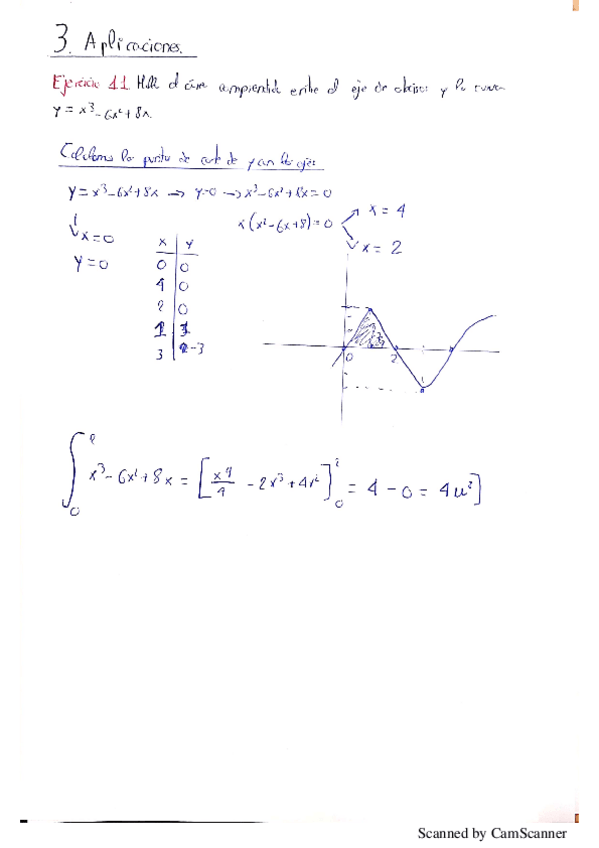 3. Aplicaciones.
Ejercicio 11. Halla el área comprendida entre el eje de abscisas y la curva
y = x³ - 6x² + 8x.
Calculamos los puntos de corte de y con los ejes
y = x³ - 6x² + 8x → y=0 → x³ - 6x² + 8x = 0
x(x² - 6x + 8) = 0
x = 4
x = 2
x = 0
y = 0
x | y
0 | 0
4 | 0
2 | 0
1
3 | -3
0 2
∫₀² x³ - 6x² + 8x = [x⁴/4 - 2x³ + 4x²]₀² = 4 - 0 = 4u²]
Scanned by CamScanner